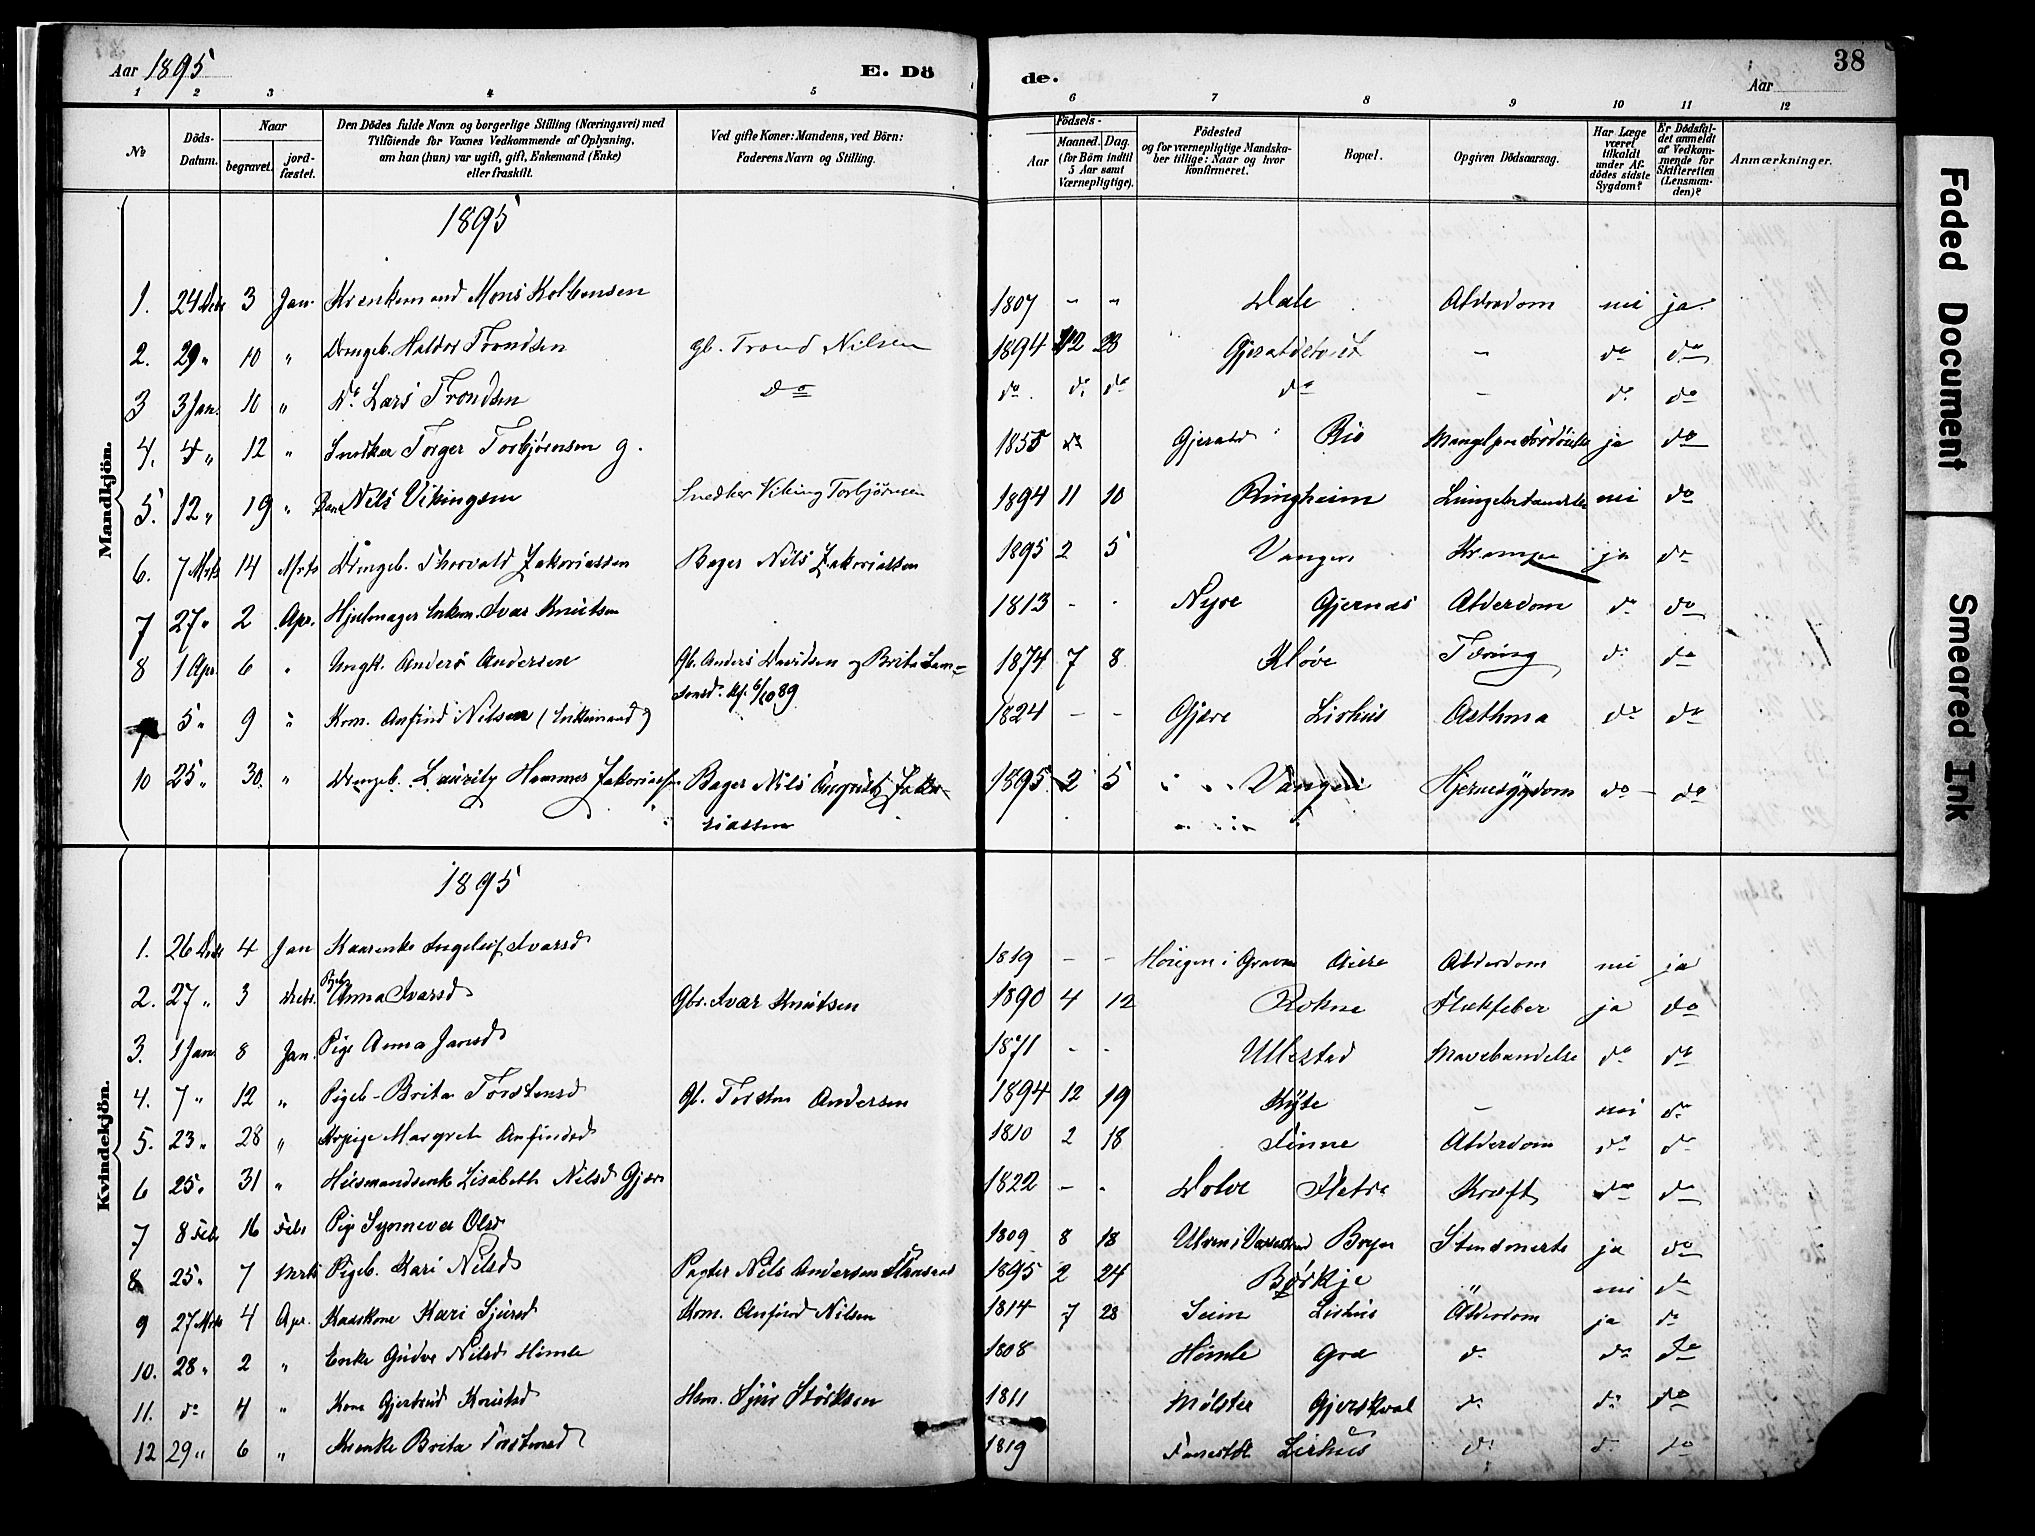 Aar 1895
E. Dö
de.
Aar
38
1 2 3 4 5 6 7 8 9 10 11 12
№
Döds-
Datum.
Naar
begravet.
jord-
fæstet.
Den Dödes fulde Navn og borgerlige Stilling (Næringsvei) med
Tilföiende for Voxnes Vedkommende af Oplysning,
om han (hun) var ugift, gift, Enkemand (Enke)
eller fraskilt.
Ved gifte Koner: Mandens, ved Börn:
Faderens Navn og Stilling.
Födsels-
Aar
Maaned. Dag.
(for Börn indtil
5 Aar samt
Værnepligtige).
Födested
og for værnepligtige Mandska-
ber tillige: Naar og hvor
konfirmeret.
Bopæl.
Opgiven Dödsaarsag.
Har Læge
været
tilkaldt
under Af-
dödes sidste
Sygdom?
Er Dödsfal-
det anmeldt
af Vedkom-
mende for
Skifteretten
(Lensman-
den)?
Anmærkninger.
Mandkjön.
1895
1. 24 Decb 3 Jan. Krenkemand Mons Kolbensen 1807 - - Dale Alderdom nei ja
2. 29 " 10 " Drengeb. Haldor Trondsen gb. Trond Nilsen 1894 12 28 - do do
3 3 Jan. 10 " Do Lars Trondsen do do do do do - do do
4. 4 " 12 " Snedker Torger Torbjørnsen g. 1855 Gjerald ja do
5. 12 " 19 " Nils Vikingsen Snedker Viking Torbjørnsen 1894 11 10 Ringheim nei do
6. 7 Mrts 14 Mrts Drengeb. Thorvald Zakariassen Bager Nils Zakariassen 1895 2 5 Vangen Krampe ja do
7 27 " 2 Apr. Hjulmager Enkem. Ivar Knutsen 1813 - - Nyre Gjernes Alderdom do do
8 1 Apr. 6 " Ungk. Anders Andersen Gb. Anders Davidsen og Brita Lam-
sonsd. Kf. 6/10 89 1874 7 8 Kløve Tæring do do
5 " 9 " Kom. Anfind Nilsen (Enkemand) 1824 - - Gjere Lirhus Asthma do do
10 25 " 30. " Drengeb. Lauritz Hammes Zakariassen Bager Nils August Zaka-
riassen 1895 2 5 Vangen Hjernesygdom do do
Kvindekjön.
1895
1. 26 Decb 4 Jan Kaarenke Ingeleif Ivarsd 1819 - - i Graven Alderdom nei ja
2. 27 " 3 Decbr. Pigeb. Anna Ivarsd Gbr. Ivar Knutsen 1890 4 12 Rokne Flekfeber ja do
3. 1 Jan. 8 Jan. Pige Anna Jansd 1871 - - Ullestad do do
4. 7 " 12 " Pigeb. Brita Torstensd Gb. Torsten Andersen 1894 12 19 Kyte - nei do
5. 23 " 28 " Margrete Anfindsd 1810 2 18 Finne Alderdom do do
6 25 " 31 " Husmandsenke Lisabeth Nilsd Gjere 1822 - - Dolve Fletre Kræft do do
7 8 Feb. 16 Feb Pige Synneva Olsd 1809 8 18 Ulven i Boyn Stensmerte ja do
8 25 " 7 Mrts Pigeb. Kari Nilsd Pagter Nils Andersen 1895 2 24 Børkje " nei do
9 27 Mrts 4 Apr. Kaarkone Kari Sjursd Kom. Anfind Nilsen 1814 7 28 Seim Lirhus Alderdom ja do
10. 28 " 2 " Enke Gudve Nilsd Himle 1808 Himle Graa do do do
11. do 4 " Kone Gjertrud Knutsd Hsm. Sjur Størksen 1811 Mølster Gjerskval do do do
12 29 " 6 " Brita Torstensd 1819 Lirhus do do do
Faded Document
Smeared Ink